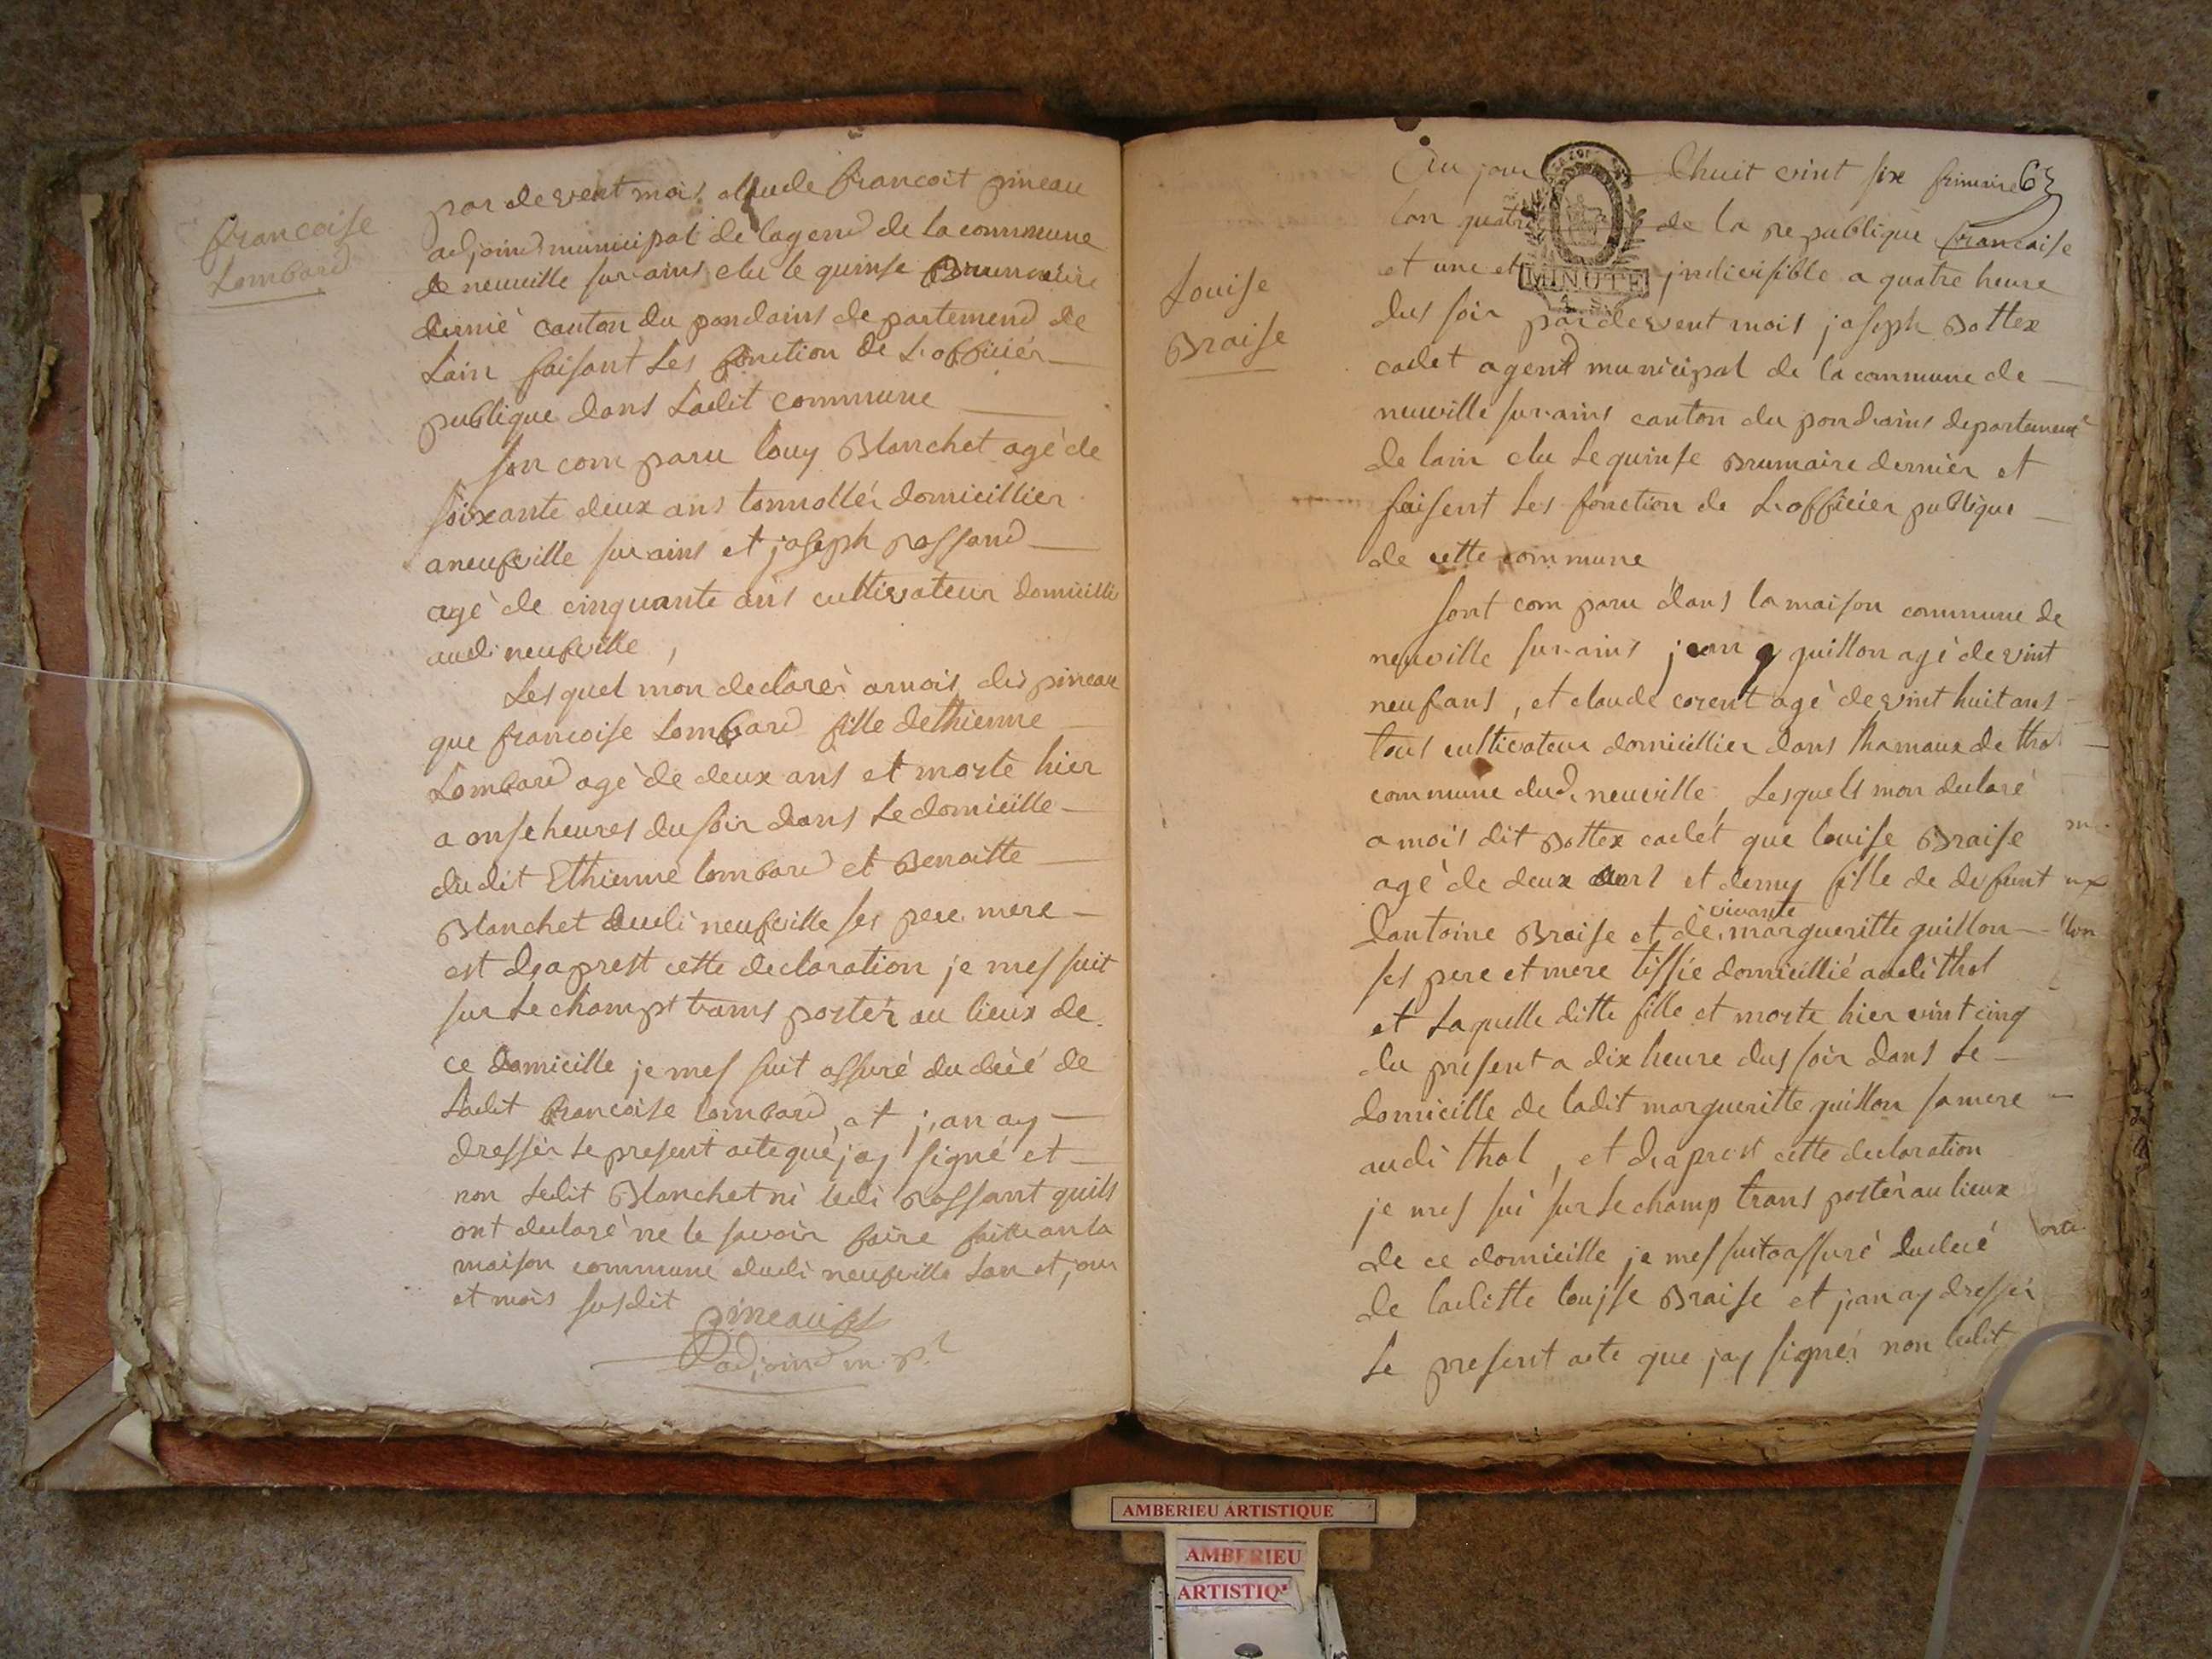 francoise
Lombard
par devent mois claude francoit pineau
adjoind municipal de lagend de la commune
de neuville sur ains elu le quinse Brumaire
dernié canton du pondains departemend de
Lain faisant Les fonction de L'officiér
publique dans Ladit commune
son com paru louy Blanchet agé de
soixante deux ans tonnollér domicillier
aneufville sur ains et joseph possand
agé de cinquante ans cultivateur domicillié
audi neufville,
Lesquel mon declarér amois dis pineau
que francoise Lombard fille dethienne
Lombard agé de deux ans et morte hier
a onse heures du soir dans Le domicille
dudit Ethienne lombard et Benoitte
Blanchet dudi neufville ses pere mere
est d'aprest cette declaration je mes suit
sur Le champt trans portér au lieux de
ce domicille je mes suit assuré du décé de
Ladit francoise lombard, et j'an ay
dressér Le present acte que jay signé et
non Ledit Blanchet ni ledi possant quils
ont declaré ne le savoir faire fait en la
maison commune dudi neufville Lan et jour
et mois susdit
pineau
adjoind m. pl
63
Au jour dhuit vint six frimaire
lan quatre de la republique francaise
MINUTE
et une et indivisible a quatre heure
dus soir pardevent mois joseph Bottex
cadet agend municipal de la commune de
neuville sur ains canton du pondains departement
de lain elu Le quinse Brumaire dernier et
faisent Les fonction de L'officier publique
de cette commune
Louise
Braise
sont com paru dans la maison commune de
neuville sur ains jean guillon agé de vint
neuf ans, et claude corent agé de vint huit ans
tous cultivateur domicillier dans lhamaux de thol
commune dud. neuville, Lesquels mon declaré
a mois dit Bottex cadét que louise Braise
agé de deux ans et demy fille de defunt
dantoine Braise et de vivante margueritte guillon
ses pere et mere tissié domicillié audi thol
et Laquelle ditte fille et morte hier vint cinq
du present a dix heure dus soir dans Le
domicille de ladit margueritte guillon sa mere
audi thol, et d'aprest cette declaration
je mes sui sur Le champ trans portér au lieux
de ce domicille je mes suit assuré du decé
de laditte louise Braise et j'an ay dressér
Le present acte que jay signér non ledit
AMBERIEU ARTISTIQUE
AMBERIEU
ARTISTIQ